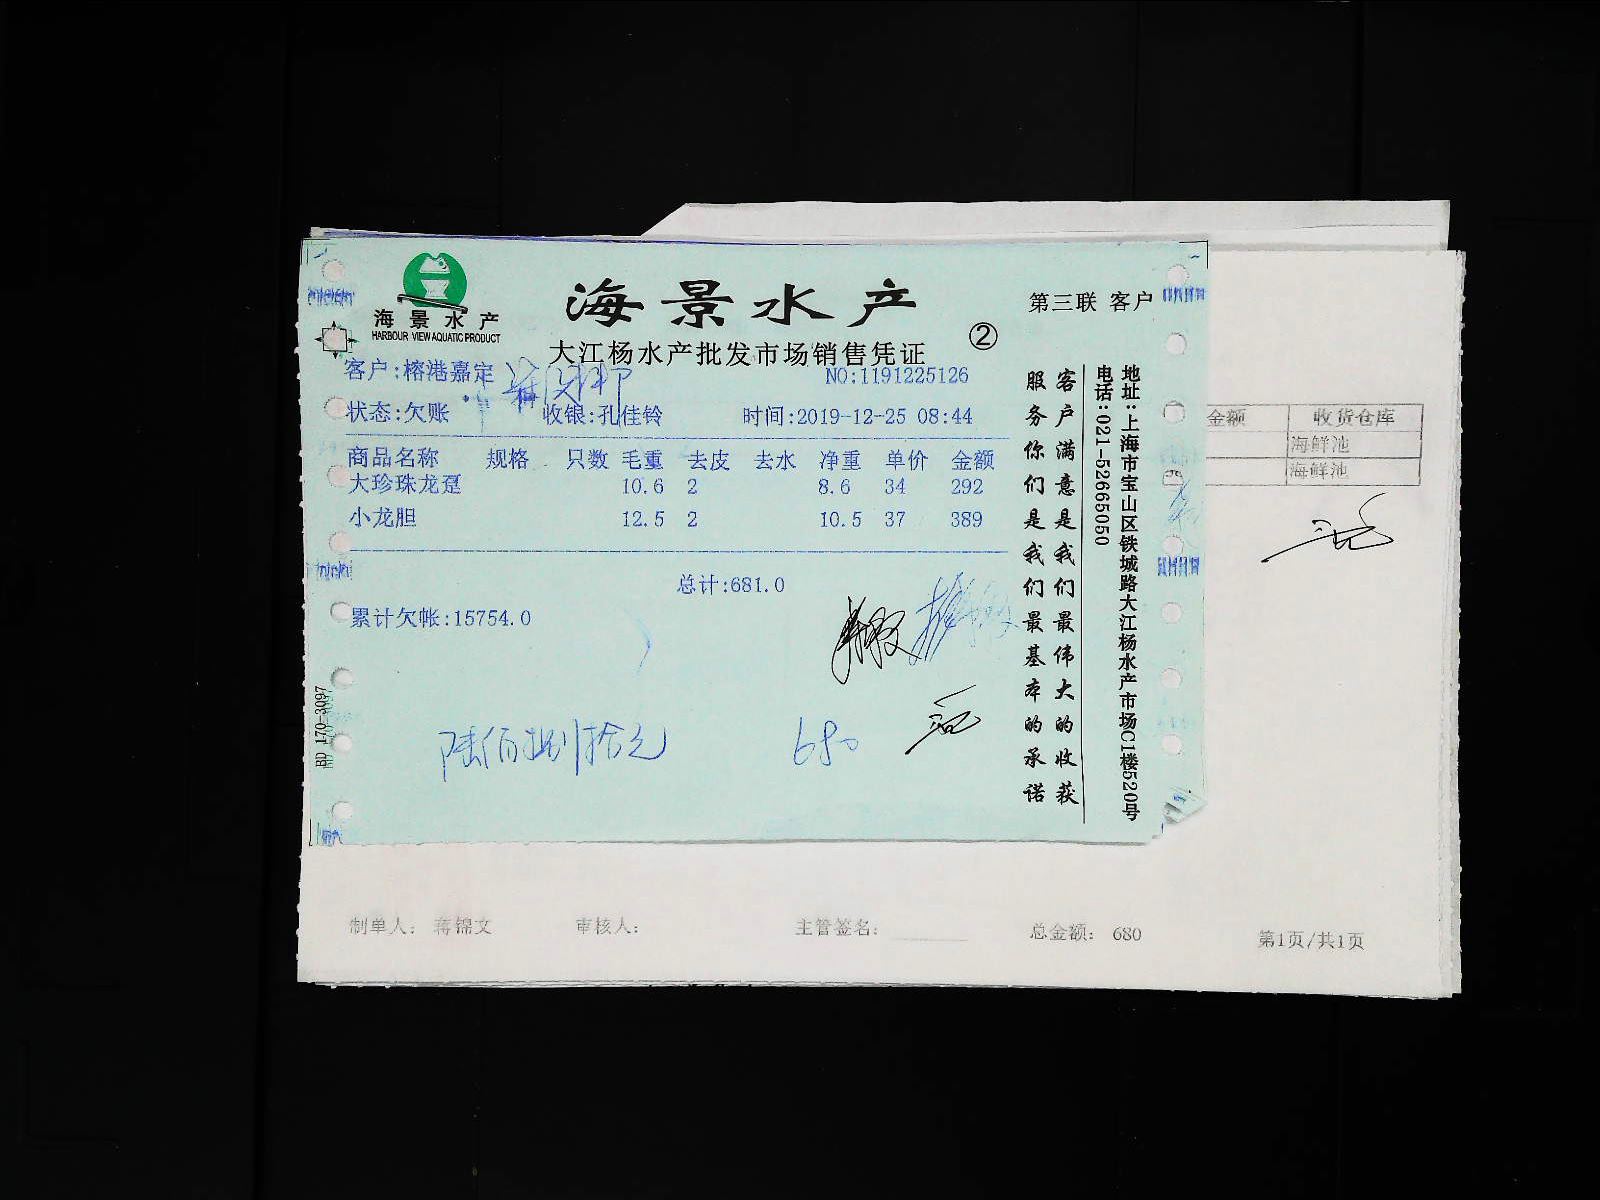 海景水产
HARBOUR VIEW AQUATIC PRODUCT
海景水产
第三联 客户
大江杨水产批发市场销售凭证
②
客户:榕港嘉定
NO:1191225126
状态:欠账 收银:孔佳铃 时间:2019-12-25 08:44
商品名称 规格 只数 毛重 去皮 去水 净重 单价 金额
大珍珠龙趸 10.6 2 8.6 34 292
小龙胆 12.5 2 10.5 37 389
总计:681.0
累计欠帐:15754.0
陆佰捌拾元 680
客户满意是我们最伟大的收获
服务你们是我们最基本的承诺
地址:上海市宝山区铁城路大江杨水产市场C1楼520号
电话:021-52665050
BD 170-3097
金额 收货仓库
海鲜池
海鲜池
制单人: 蒋锦文 审核人: 主管签名: 总金额: 680 第1页/共1页